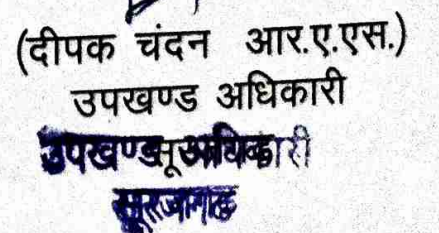 (दीपक चंदन आर.ए.एस.)
उपखण्ड अधिकारी
उपखण्ड अधिकारी
सूरजगढ़